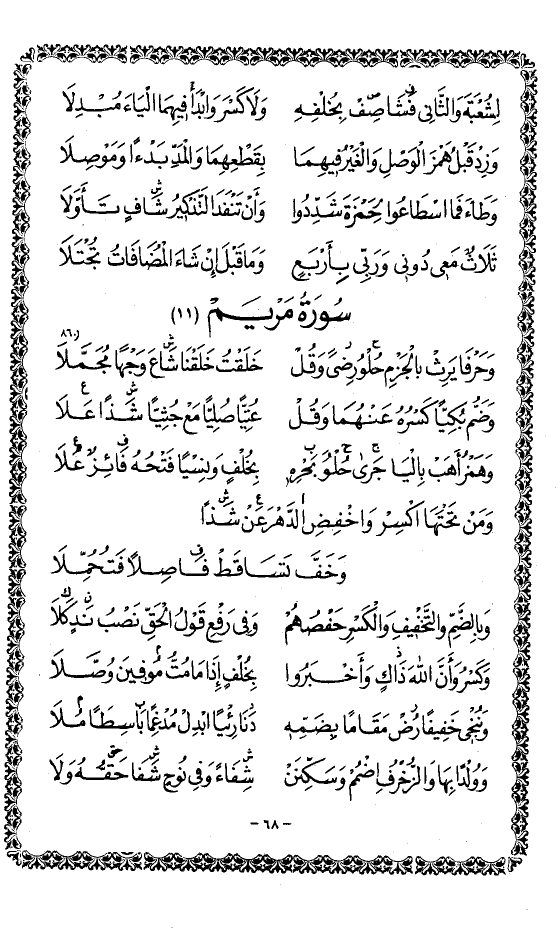 لِشُعْبَةَ وَالثَّانِي فَشَا صِفْ بِخُلْفِهِ وَلَا كَسْرَ وَابْدَأْ فِيهِمَا الْيَاءَ مُبْدِلَا
وَزِدْ قَبْلُ هَمْزَ الْوَصْلِ وَالْغَيْرُ فِيهِمَا بِقَطْعِهِمَا وَالْمَدِّ بَدْءًا وَمَوْصِلَا
وَطَاءَ فَمَا اسْطَاعُوا لِحَمْزَةَ شَدِّدُوا وَأَنْ تَنْفَدَ التَّذْكِيرُ شَافٍ تَأَوَّلَا
ثَلَاثٌ مَعِي دُونِي وَرَبِّي بِأَرْبَعٍ وَمَا قَبْلَ إِنْ شَاءَ الْمُضَافَاتُ تُجْتَلَا
سُورَةُ مَرْيَم (١١)
وَحَرْفَا يَرِثْ بِالْجَزْمِ حُلْوُ رِضىً وَقُلْ خَلَقْتُ خَلَقْنَا شَاعَ وَجْهًا مُجَمَّلَا ٨٦٠
وَضَمُّ بُكِيًّا كَسْرُهُ عَنْهُمَا وَقُلْ عِتِيًّا صِلِيًّا مَعْ جُثِيًّا شَذًا عَلَا
وَهَمْزُ أَهَبْ بِالْيَا جَرَى حُلْوُ بَحْرِهِ بِخُلْفٍ وَنِسْيًا فَتْحُهُ فَائِزٌ عُلَا
وَمَنْ تَحْتَهَا اكْسِرْ وَاخْفِضِ الدَّهْرَ عَنْ شَذًا
وَخَفَّ تَسَاقَطْ فَاصِلًا فَتُحُمِّلَا
وَبِالضَّمِّ وَالتَّخْفِيفِ وَالْكَسْرِ حَفْصُهُمْ وَفِي رَفْعِ قَوْلُ الْحَقِّ نَصْبُ نَدٍ كَلَا
وَكَسْرُ وَأَنَّ اللهَ ذَاكٍ وَأَخْبَرُوا بِخُلْفٍ إِذَا مَا مُتُّ مُوفِينَ وُصَّلَا
وَنُنْجِي خَفِيفًا رُضْ مَقَامًا بِضَمِّهِ دَنَا رِئْيًا ابْدِلْ مُدْغِمًا بَاسِطًا مُلَا
وَوُلْدًا بِهَا وَالزُّخْرُفِ اضْمُمْ وَسَكِّنَنْ شِفَاءً وَفِي نُوحٍ شَفَا حَقُّهُ وَلَا
- ٦٨ -